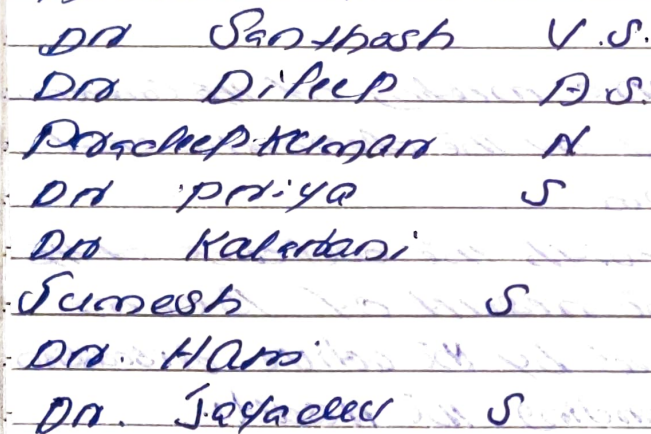 Dr Santhosh V.S.
Dr Dileep A.S.
Pradeep.Kumar N
Dr Priya S
Dr Kalarani
Sumesh S
Dr. Hari
Dr. Jayadev S